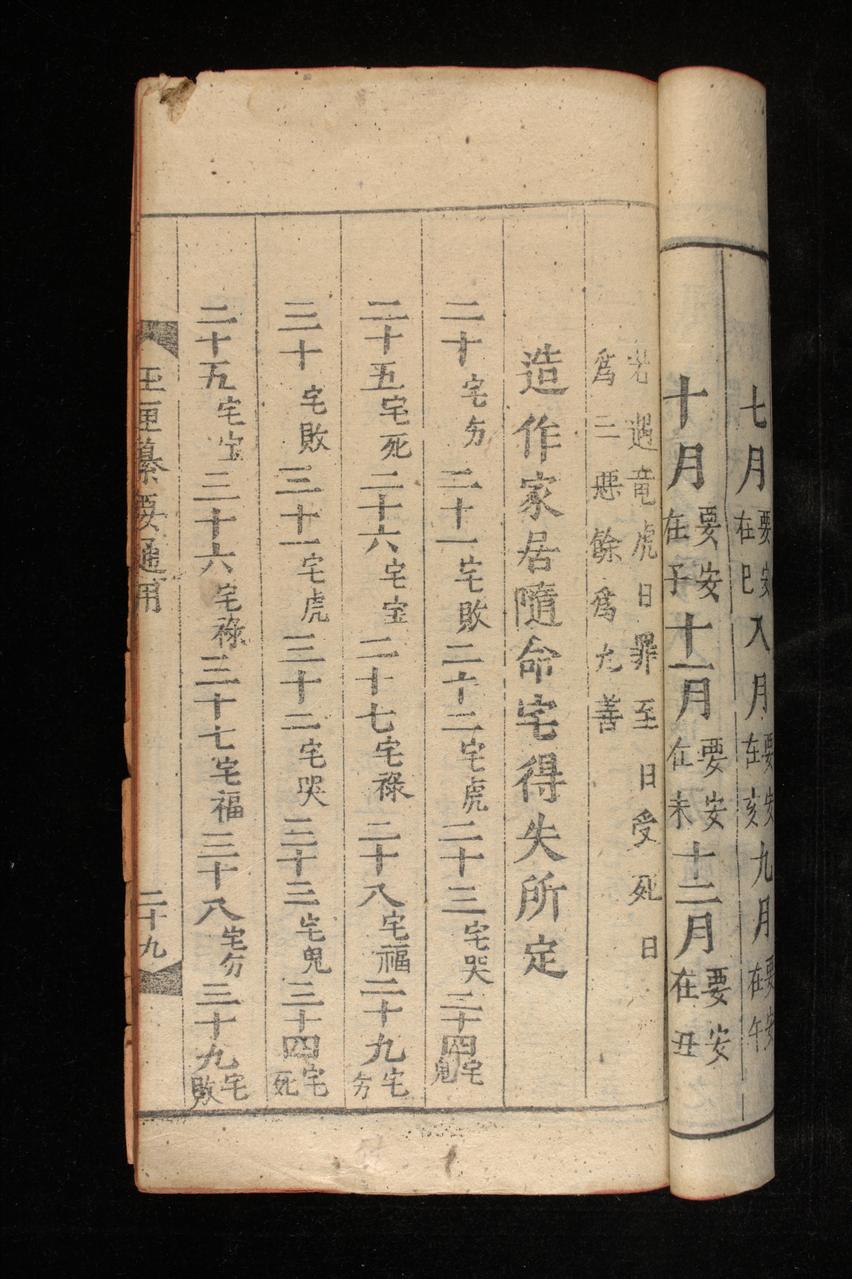 七月要安在巳八月要安在亥九月要安在午
十月要安在子十一月要安在未十二月要安在丑
若遇竜虎日罪至日受死日
爲二惡餘爲九善
造作家居隨命宅得失所定
二十宅二十一宅敗二十二宅虎二十三宅哭二十四宅鬼
二十五宅死二十六宅宝二十七宅祿二十八宅福二十九宅
三十宅敗三十一宅虎三十二宅哭三十三宅鬼三十四宅死
三十五宅宝三十六宅祿三十七宅福三十八宅三十九宅敗
玉匣纂要通用
二十九